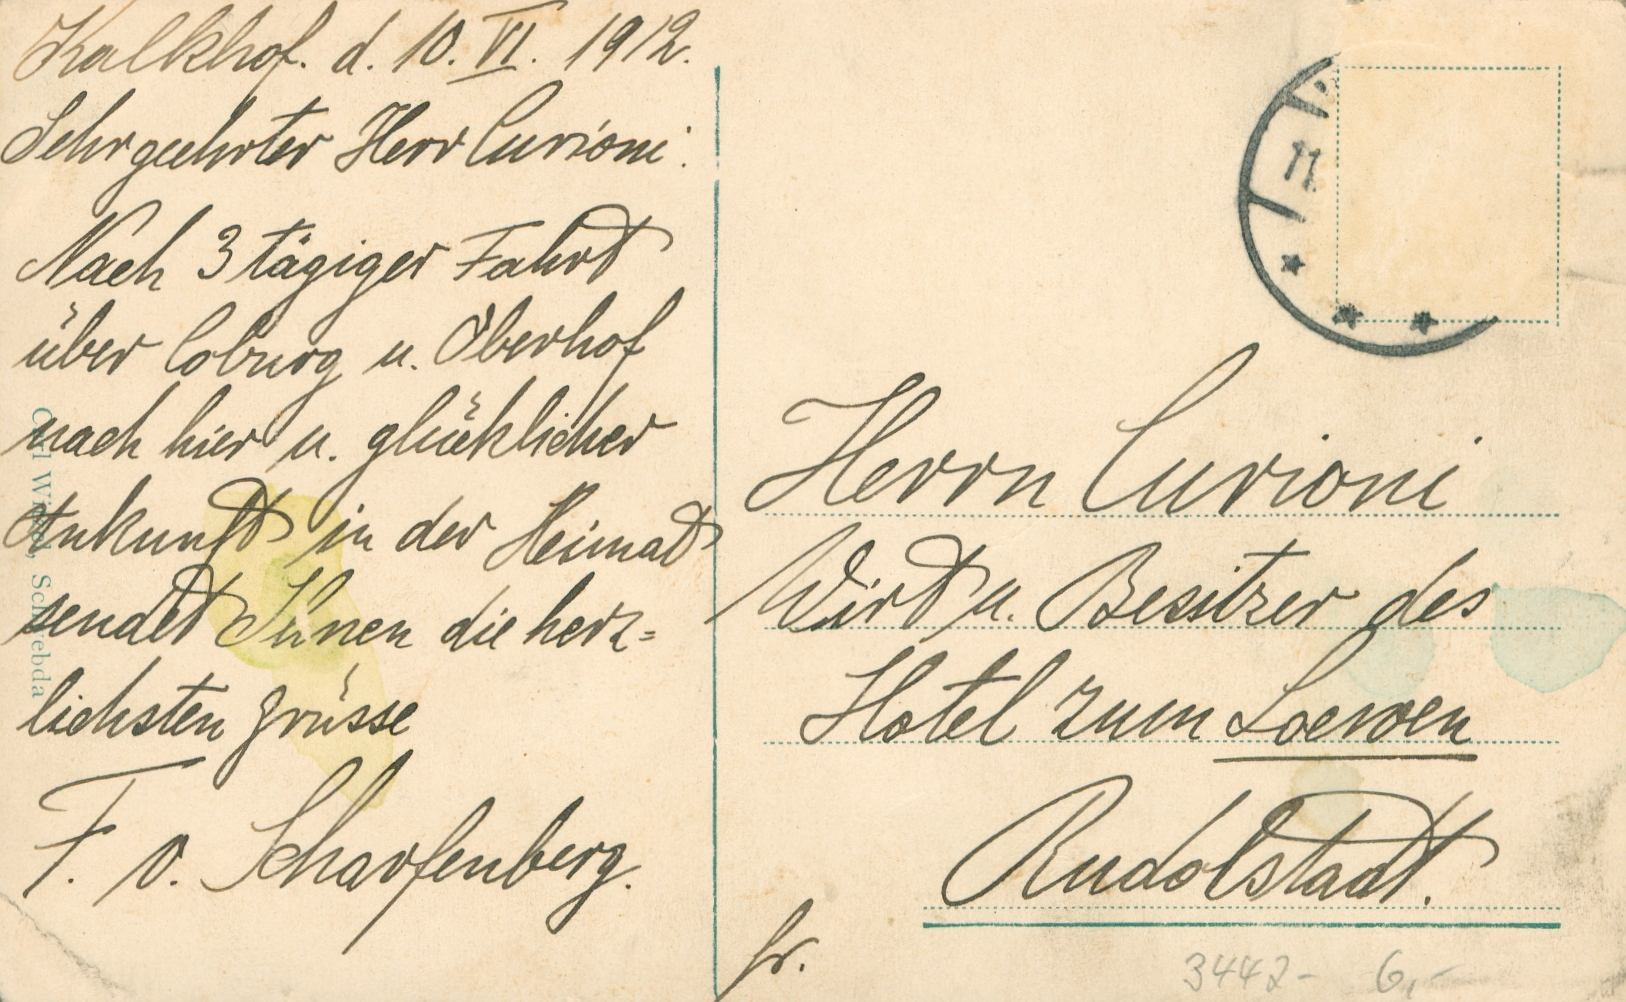 Kalkhof. d. 10. VI. 1912.
Sehr geehrter Herr Curioni.
Nach 3 tägiger Fahrt
über Coburg u. Oberhof
nach hier u. glücklicher
Ankunft in der Heimat
sendet Ihnen die herz=
lichsten Grüsse
F. v. Scharfenberg.
Carl Wi Schwebda
11.
Herrn Curioni
Wirt u. Besitzer des
Hotel zum Loewen
Rudolstadt.
fr.
3442- 6,-